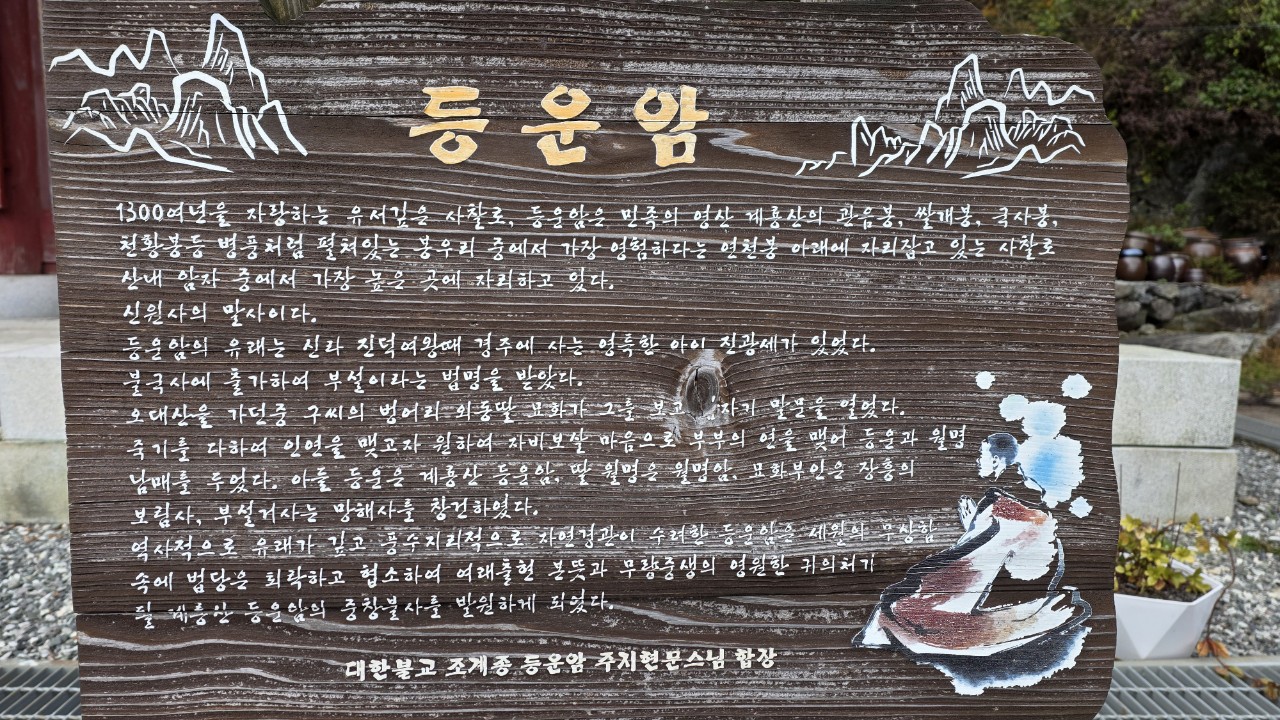 등운암
1300여년을 자랑하는 유서깊은 사찰로, 등운암은 민족의 영산 계룡산의 관음봉, 쌀개봉, 국사봉,
천황봉등 병풍처럼 펼쳐있는 봉우리 중에서 가장 영험하다는 연천봉 아래에 자리잡고 있는 사찰로
산내 암자 중에서 가장 높은 곳에 자리하고 있다.
신원사의 말사이다.
등운암의 유래는 신라 진덕여왕때 경주에 사는 영특한 아이 진광세가 있었다.
불국사에 출가하여 부설이라는 법명을 받았다.
오대산을 가던중 구씨의 벙어리 외동딸 묘화가 그를 보고 말문을 열었다.
죽기를 다하여 인연을 맺고자 원하여 자비보살 마음으로 부부의 연을 맺어 등운과 월명
남매를 두었다. 아들 등운은 계룡산 등운암, 딸 월명은 월명암, 묘화부인은 장흥의
보림사, 부설거사는 망해사를 창건하였다.
역사적으로 유래가 깊고 풍수지리적으로 자연경관이 수려한 등운암은 세월의 무상함
속에 법당은 퇴락하고 협소하여 여래출현 본뜻과 무량중생의 영원한 귀의처가
될 등운암의 중창불사를 발원하게 되었다.
대한불교 조계종 등운암 주지현문스님 합장